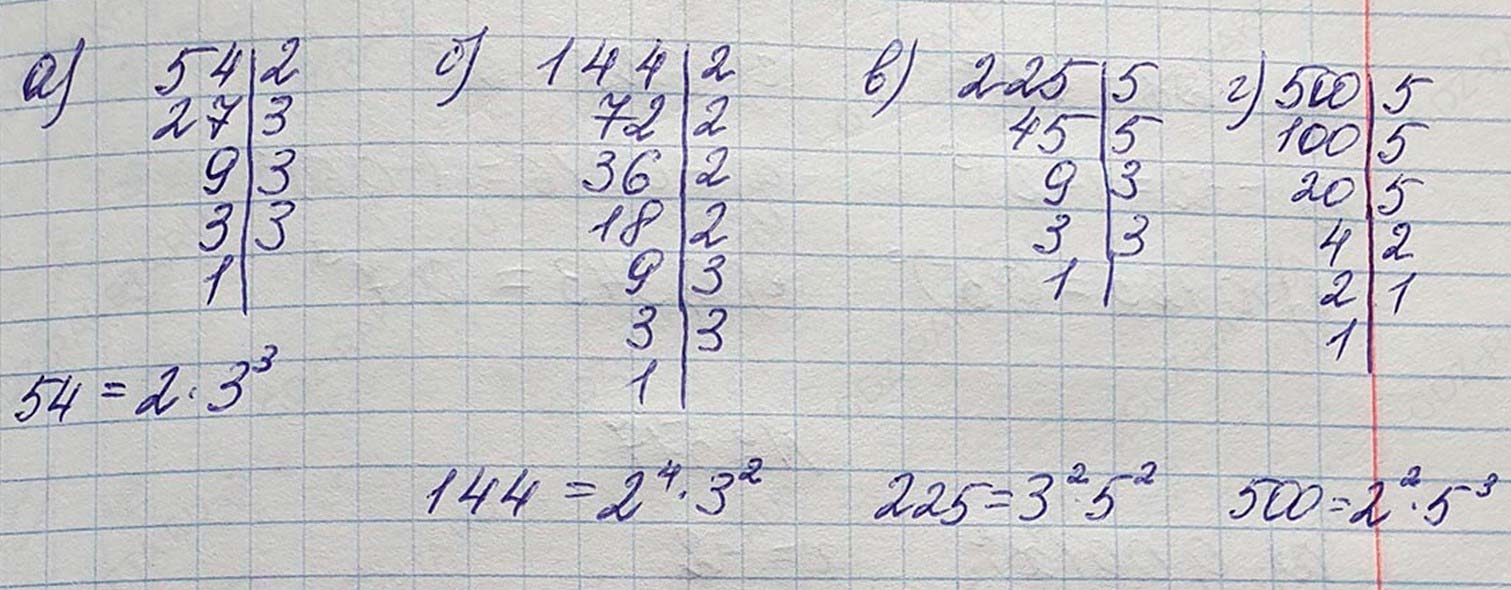 а) 54 | 2
27 | 3
9 | 3
3 | 3
1
54 = 2 · 3³
б) 144 | 2
72 | 2
36 | 2
18 | 2
9 | 3
3 | 3
1
144 = 2⁴ · 3²
в) 225 | 5
45 | 5
9 | 3
3 | 3
1
225 = 3² · 5²
г) 500 | 5
100 | 5
20 | 5
4 | 2
2 | 1
1
500 = 2² · 5³